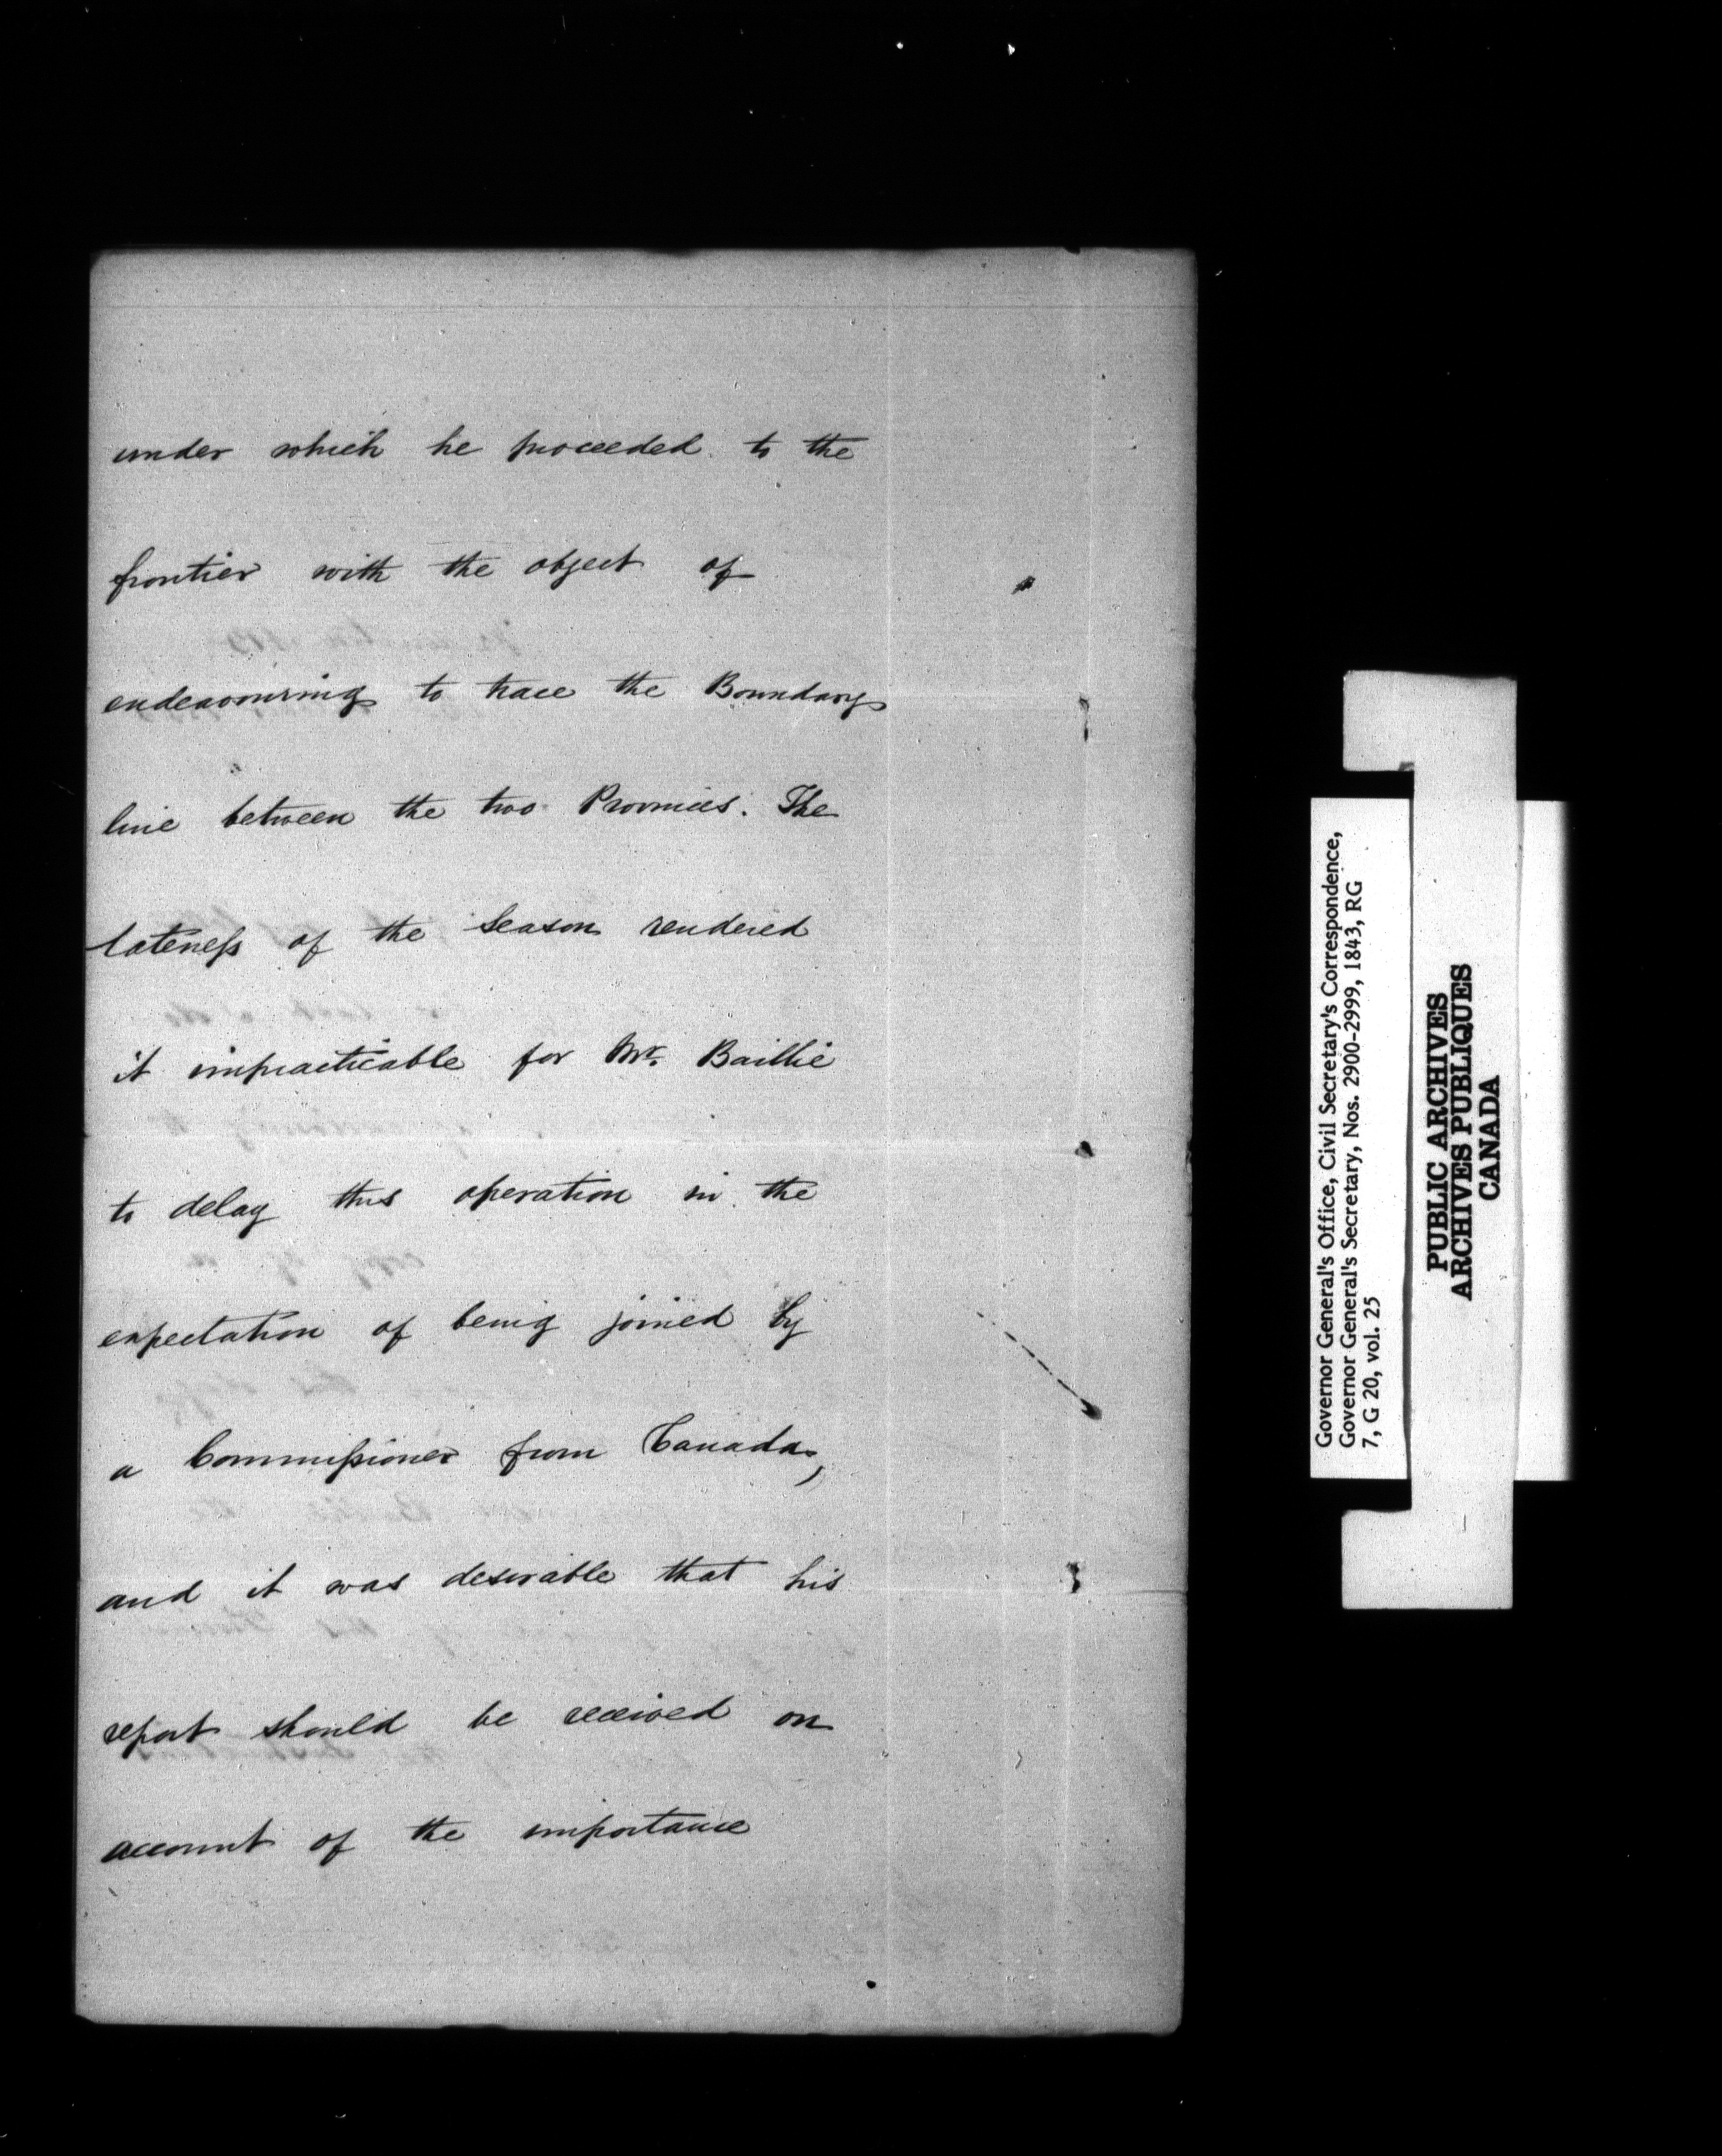 under which he proceeded to the
frontier with the object of
endeavouring to trace the Boundary
line between the two Provinces. The
lateness of the Season rendered
it impracticable for Mr. Baillie
to delay this operation in the
expectation of being joined by
a Commissioner from Canada,
and it was desirable that his
report should be received on
account of the importance
Governor General's Office, Civil Secretary's Correspondence,
Governor General's Secretary, Nos. 2900-2999, 1843, RG
7, G 20, vol. 25
PUBLIC ARCHIVES
ARCHIVES PUBLIQUES
CANADA